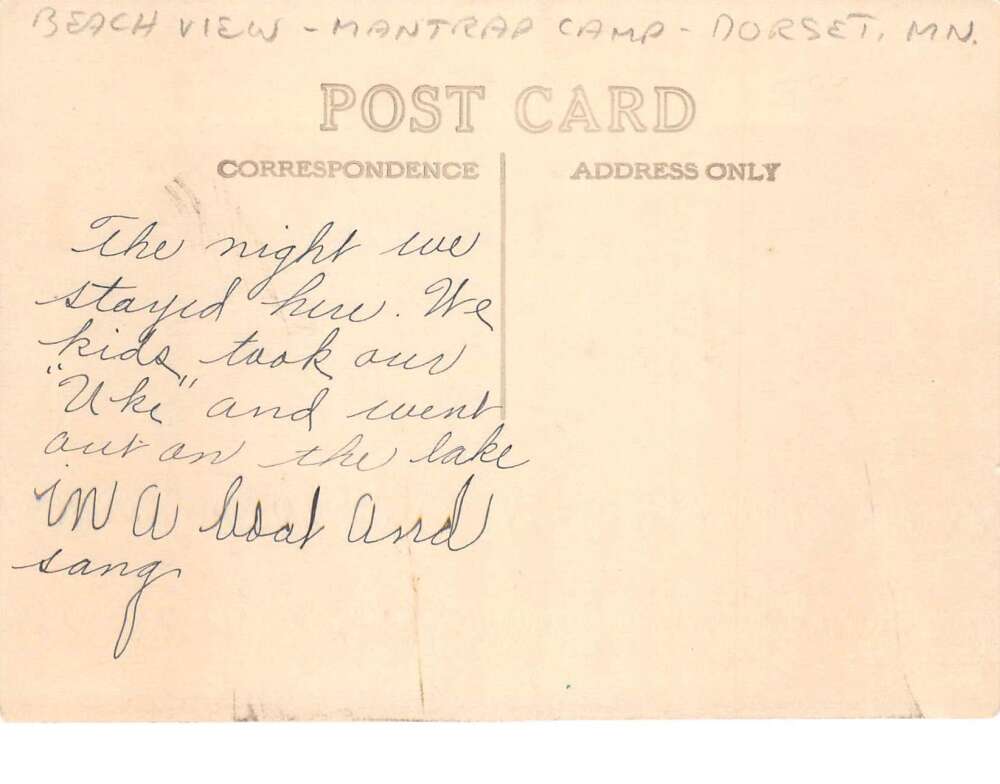 BEACH VIEW - MANTRAP CAMP - DORSET, MN.
POST CARD
CORRESPONDENCE
ADDRESS ONLY
The night we
stayed here. We
kids, took our
"Uke" and went
out on the lake
in a boat and
sang